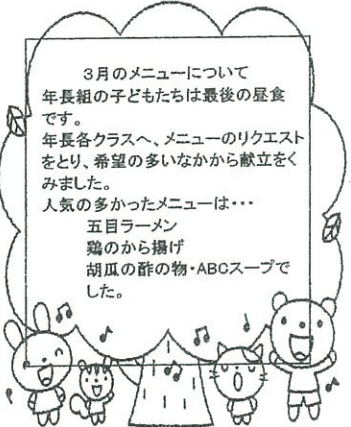 3月のメニューについて
年長組の子どもたちは最後の昼食
です。
年長各クラスへ、メニューのリクエスト
をとり、希望の多いなかから献立をく
みました。
人気の多かったメニューは・・・
五目ラーメン
鶏のから揚げ
胡瓜の酢の物・ABCスープで
した。